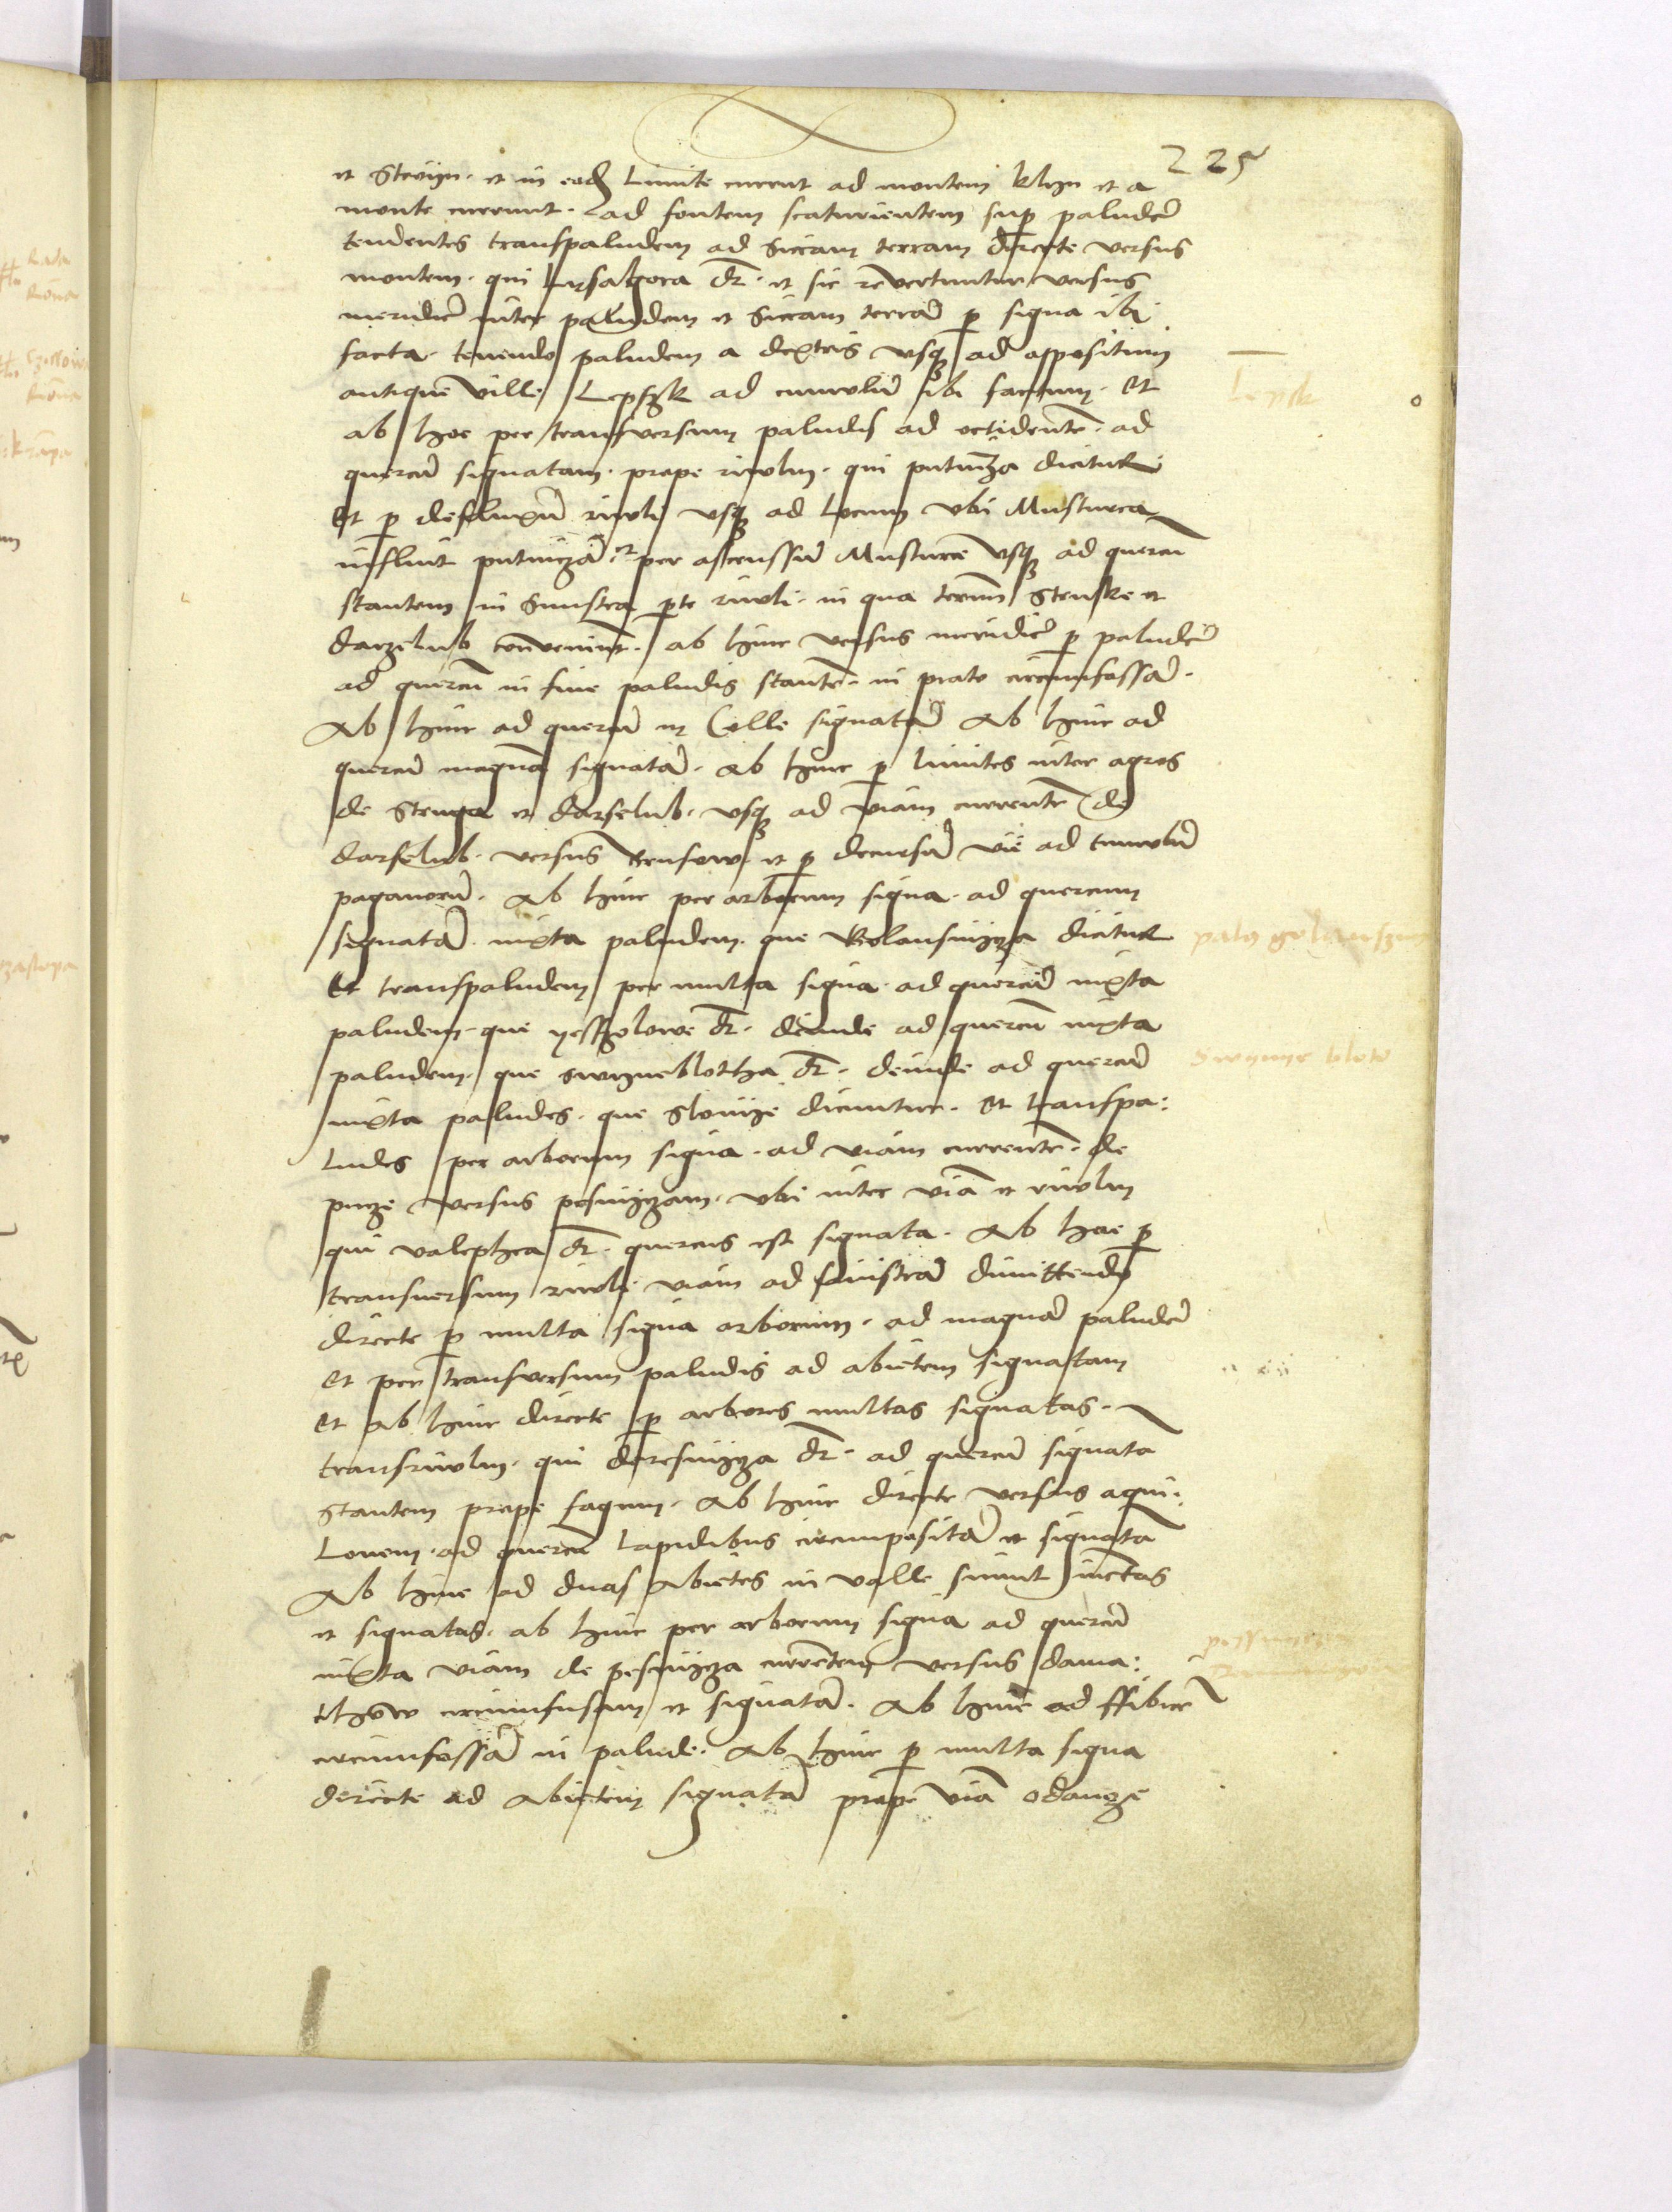 225
et Stevyn. et in eodem Limite current ad montem klyn et a
monte currunt. ad fontem scaturientem sup paludē
tendentes transpaludem ad Siccam terram directe versus
montem. qui lyssahora dr̄. et sic revertuntur versus
meridiē inter paludem et Siccam terrā p signa ibi
facta. tenendo paludem a dextris vsq ad oppositum
antique ville Lepszk ad cumulū ibi factum. Et
ab hoc per transversum paludis ad occidentē. ad
quercū signatam. prope rivulū. qui putnicza dicitur
Et p defluxū rivuli vsq ad Locum vbi Musturca
influit putniczā. et per ascenssū Musturce vsq ad quercū
stantem in Sinistra pte rivuli. in qua termini Stenske et
darzelub conveniunt. ab hinc versus meridiē p paludē
ad quercū in fine paludis stantē. in prato circumfossā.
Ab hinc ad quercū in Colle signatā Ab hinc ad
quercū magnā signatā. Ab hinc p limites inter agros
de Stenga et darselub. vsq ad viam currentē de
darselub. versus Rensow. et p decursū vie ad tumulū
paganorū. Ab hinc per arborum signa. ad quercum
signatā. iuxta paludem. que Kolansnizza dicitur
Et transpaludem per multa signa. ad quercū iuxta
paludem. que yesszolowe dr̄. deinde ad quercū iuxta
paludem. que swyneblotha dr̄. deinde ad quercū
iuxta paludes. que Slovize dicuntur. Et transpa:
ludes per arborum signa. ad viam currentē. de
pucze versus pesnizzam. vbi inter viā et rivulū
qui valephea dr̄. quercus est signata. Ab hac p
transversum rivuli viam ad sinistrā dimittendo
directe p multa signa arborum. ad magnā paludē
Et per transversum paludis ad abietem signatam
Et ab hinc directe p arbores multas signatas.
transrivulū. qui dresnizza dr̄. ad quercū signatā
Stantem prope fagum. Ab hinc directe versus aqui:
Lonem. ad quercū Lapidibus circumpositā et signatā
Ab hinc ad duas Abietes in valle simul iunctas
et signatas. ab hinc per arborum signa ad quercū
iuxta viam de pesnizza currentem versus dama:
thow circumfusam et signatā. Ab hinc ad
circumfossā in palude. Ab hinc p multa signa
directe ad Abietem signatā prope viā odanze
Lepsk
swynye bloto